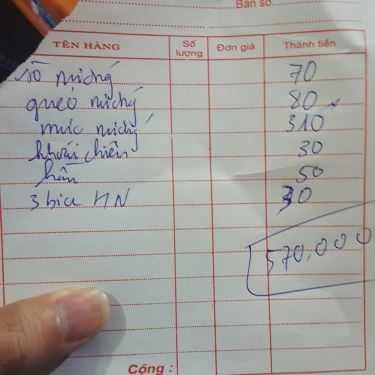 Bàn số
TÊN HÀNG Số lượng Đơn giá Thành tiền
sò nichý 70
queó nichý 80
mực nichý 310
khoai chiên 30
hấu 50
3 bia HN 30
570.000
Cộng :